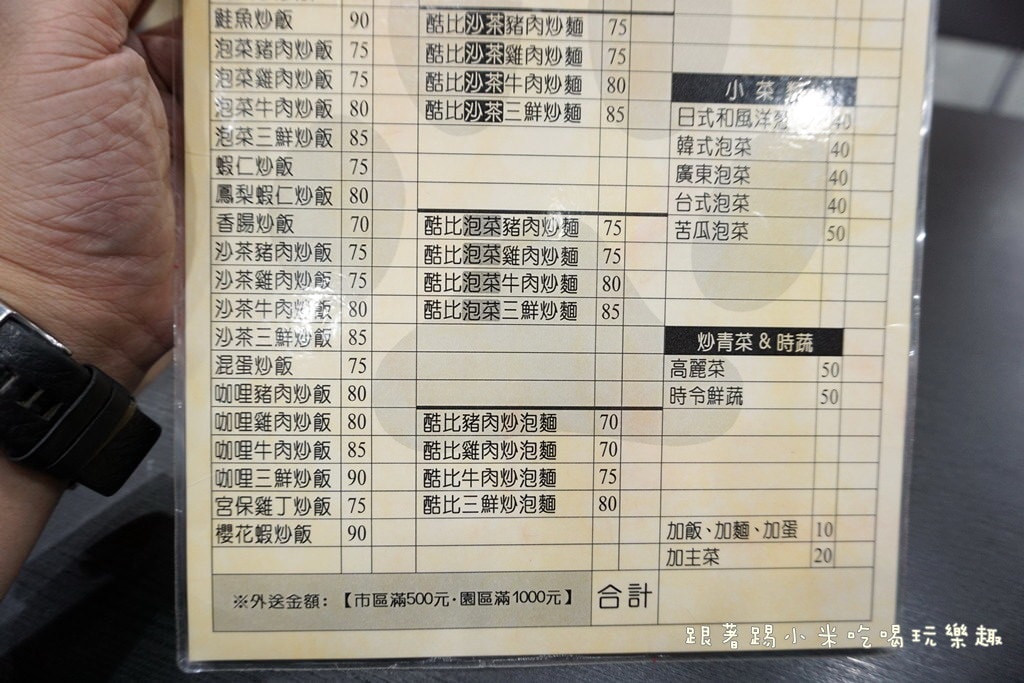 鮭魚炒飯 90
泡菜豬肉炒飯 75
泡菜雞肉炒飯 75
泡菜牛肉炒飯 80
泡菜三鮮炒飯 85
蝦仁炒飯 75
鳳梨蝦仁炒飯 80
香腸炒飯 70
沙茶豬肉炒飯 75
沙茶雞肉炒飯 75
沙茶牛肉炒飯 80
沙茶三鮮炒飯 85
混蛋炒飯 75
咖哩豬肉炒飯 80
咖哩雞肉炒飯 80
咖哩牛肉炒飯 85
咖哩三鮮炒飯 90
宮保雞丁炒飯 75
櫻花蝦炒飯 90
酷比沙茶豬肉炒麵 75
酷比沙茶雞肉炒麵 75
酷比沙茶牛肉炒麵 80
酷比沙茶三鮮炒麵 85
酷比泡菜豬肉炒麵 75
酷比泡菜雞肉炒麵 75
酷比泡菜牛肉炒麵 80
酷比泡菜三鮮炒麵 85
酷比豬肉炒泡麵 70
酷比雞肉炒泡麵 70
酷比牛肉炒泡麵 75
酷比三鮮炒泡麵 80
小菜類
日式和風洋蔥 40
韓式泡菜 40
廣東泡菜 40
台式泡菜 40
苦瓜泡菜 50
炒青菜&時蔬
高麗菜 50
時令鮮蔬 50
加飯、加麵、加蛋 10
加主菜 20
※外送金額：【市區滿500元·園區滿1000元】
合計
跟著踢小米吃喝玩樂趣